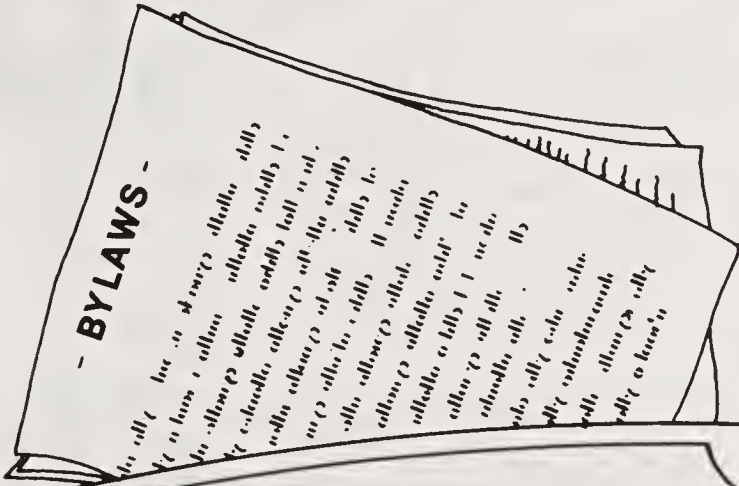 - BYLAWS -